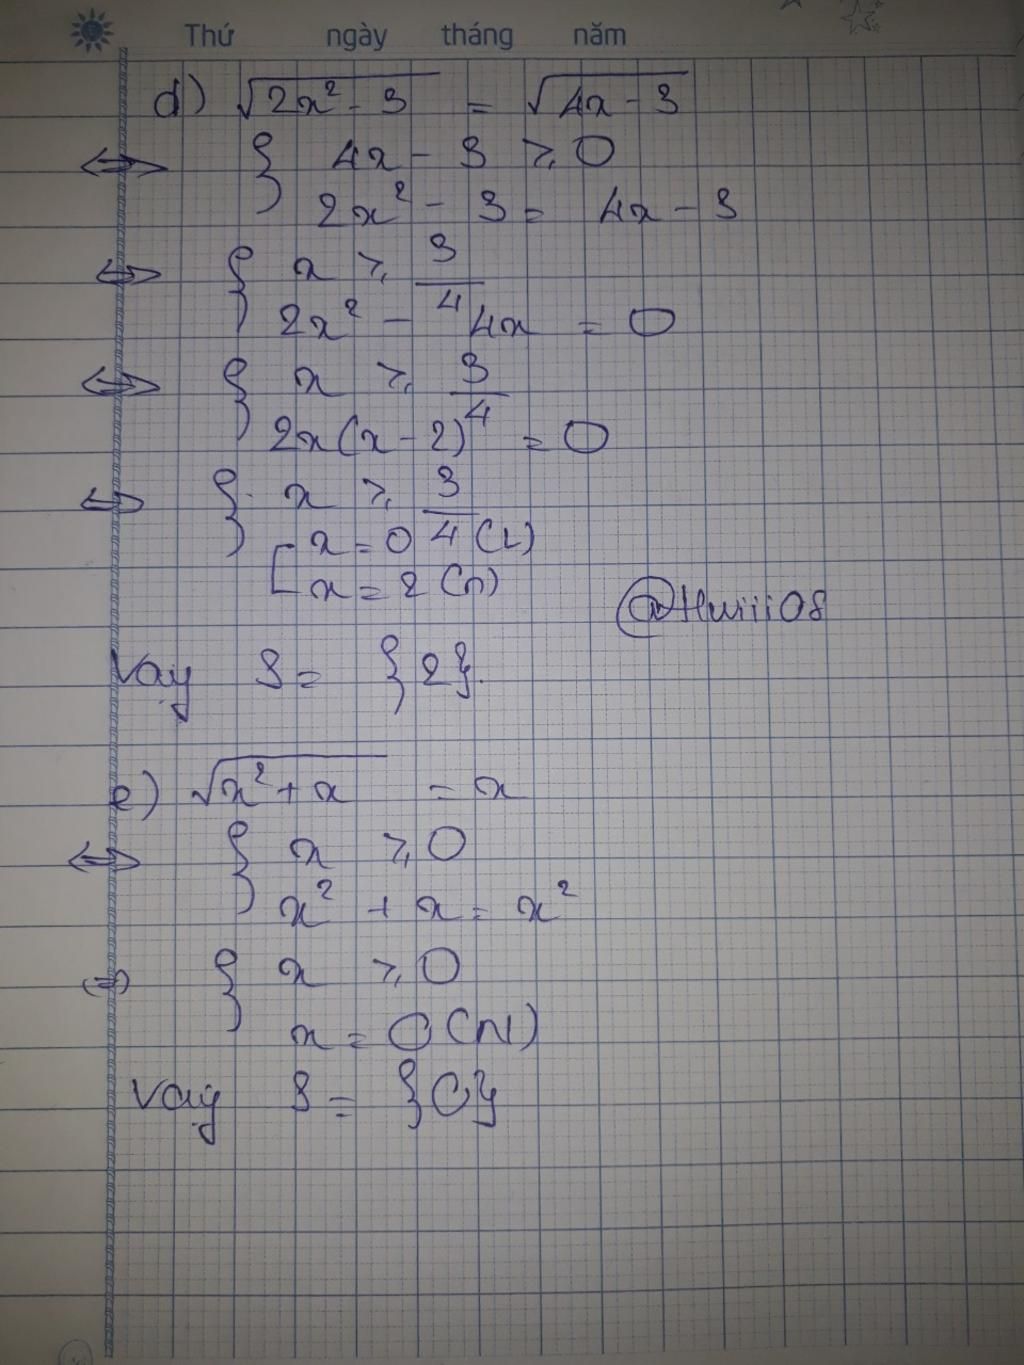 Thứ ngày tháng năm
d) √(2x² - 3) = √(4x - 3)
⇔ { 4x - 3 ⩾ 0
2x² - 3 = 4x - 3
⇔ { x ⩾ 3/4
2x² - 4x = 0
⇔ { x ⩾ 3/4
2x(x - 2) = 0
⇔ { x ⩾ 3/4
[ x = 0 (L)
x = 2 (n)
@Hwiii08
Vay S = {2}.
e) √(x² + x) = x
⇔ { x ⩾ 0
x² + x = x²
⇔ { x ⩾ 0
x = 0 (N)
Vay S = {0}